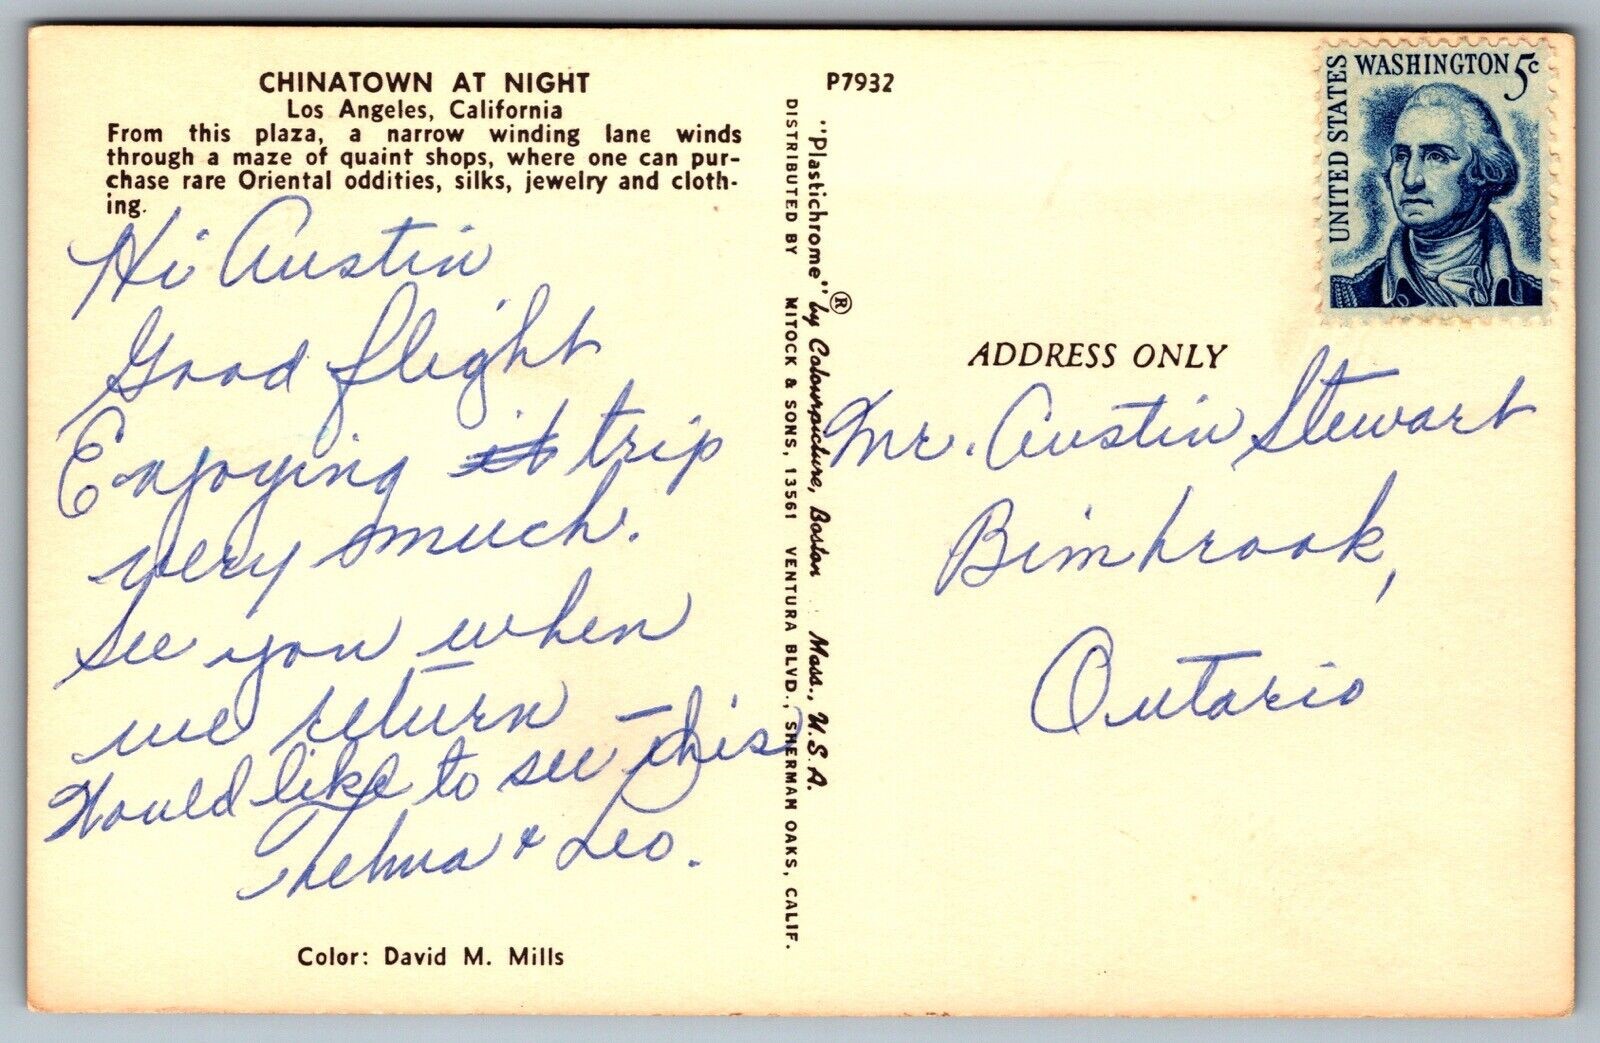 CHINATOWN AT NIGHT
Los Angeles, California
From this plaza, a narrow winding lane winds
through a maze of quaint shops, where one can pur-
chase rare Oriental oddities, silks, jewelry and cloth-
ing.
Hi Austin
Good flight
Enjoying it trip
very much.
See you when
we return –
Would like to see this
Thelma & Leo.
Color: David M. Mills
P7932
"Plastichrome"® by Colourpicture, Boston Mass., U.S.A.
DISTRIBUTED BY MITOCK & SONS, 13561 VENTURA BLVD., SHERMAN OAKS, CALIF.
UNITED STATES
WASHINGTON 5c
ADDRESS ONLY
Mr. Austin Stewart
Bimbrook,
Ontario